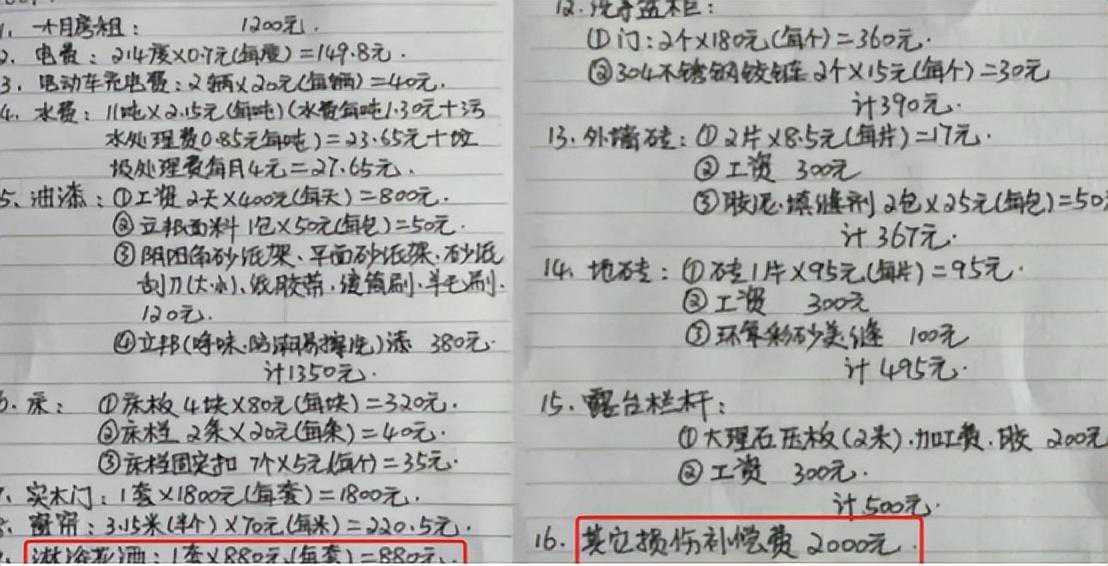 1、一个月房租： 1200元.
2、电费：214度×0.7元(每度)=149.8元.
3、电动车充电费：2辆×20元(每辆)=40元.
4、水费：11吨×2.15元(每吨)(水费每吨1.30元+污
水处理费0.85元每吨)=23.65元+垃
圾处理费每月4元=27.65元.
5、油漆：①工资2天×400元(每天)=800元.
②立邦面料1包×50元(每包)=50元.
③阴阳角砂纸架、平面砂纸架、砂纸
刮刀(大小)、纸胶带、滚筒刷、羊毛刷.
120元.
④立邦(净味、防潮易擦洗)漆 380元.
计1350元.
床：①床板4块×80元(每块)=320元.
②床栏 2条×20元(每条)=40元.
③床栏固定扣 7个×5元(每个)=35元.
实木门：1套×1800元(每套)=1800元.
窗帘：3.15米(半个)×70元(每米)=220.5元.
淋浴花洒：1套×880元(每套)=880元.
12.洗手盆柜：
①门：2个×180元(每个)=360元.
②304不锈钢铰链 2个×15元(每个)=30元
计390元.
13.外墙砖：①2片×8.5元(每片)=17元.
②工资 300元
③胶泥.填缝剂2包×25元(每包)=50
计367元.
14.地砖：①砖1片×95元(每片)=95元.
②工资 300元
③环氧彩砂美缝 100元
计495元.
15.露台栏杆：
①大理石压板(2米).加工费.胶 200元
②工资 300元.
计500元.
16.其它损伤补偿费2000元.